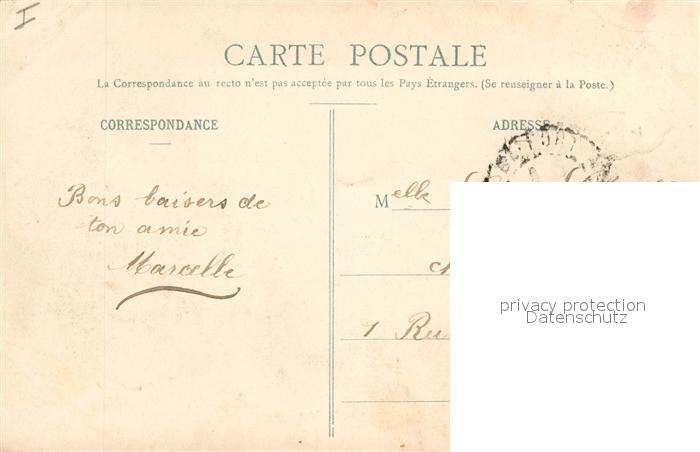 I
CARTE POSTALE
La Correspondance au recto n'est pas acceptée par tous les Pays Étrangers. (Se renseigner à la Poste.)
CORRESPONDANCE
Bons baisers de
ton amie
Marcelle
ADRESSE
Melle
1 Ru
privacy protection
Datenschutz